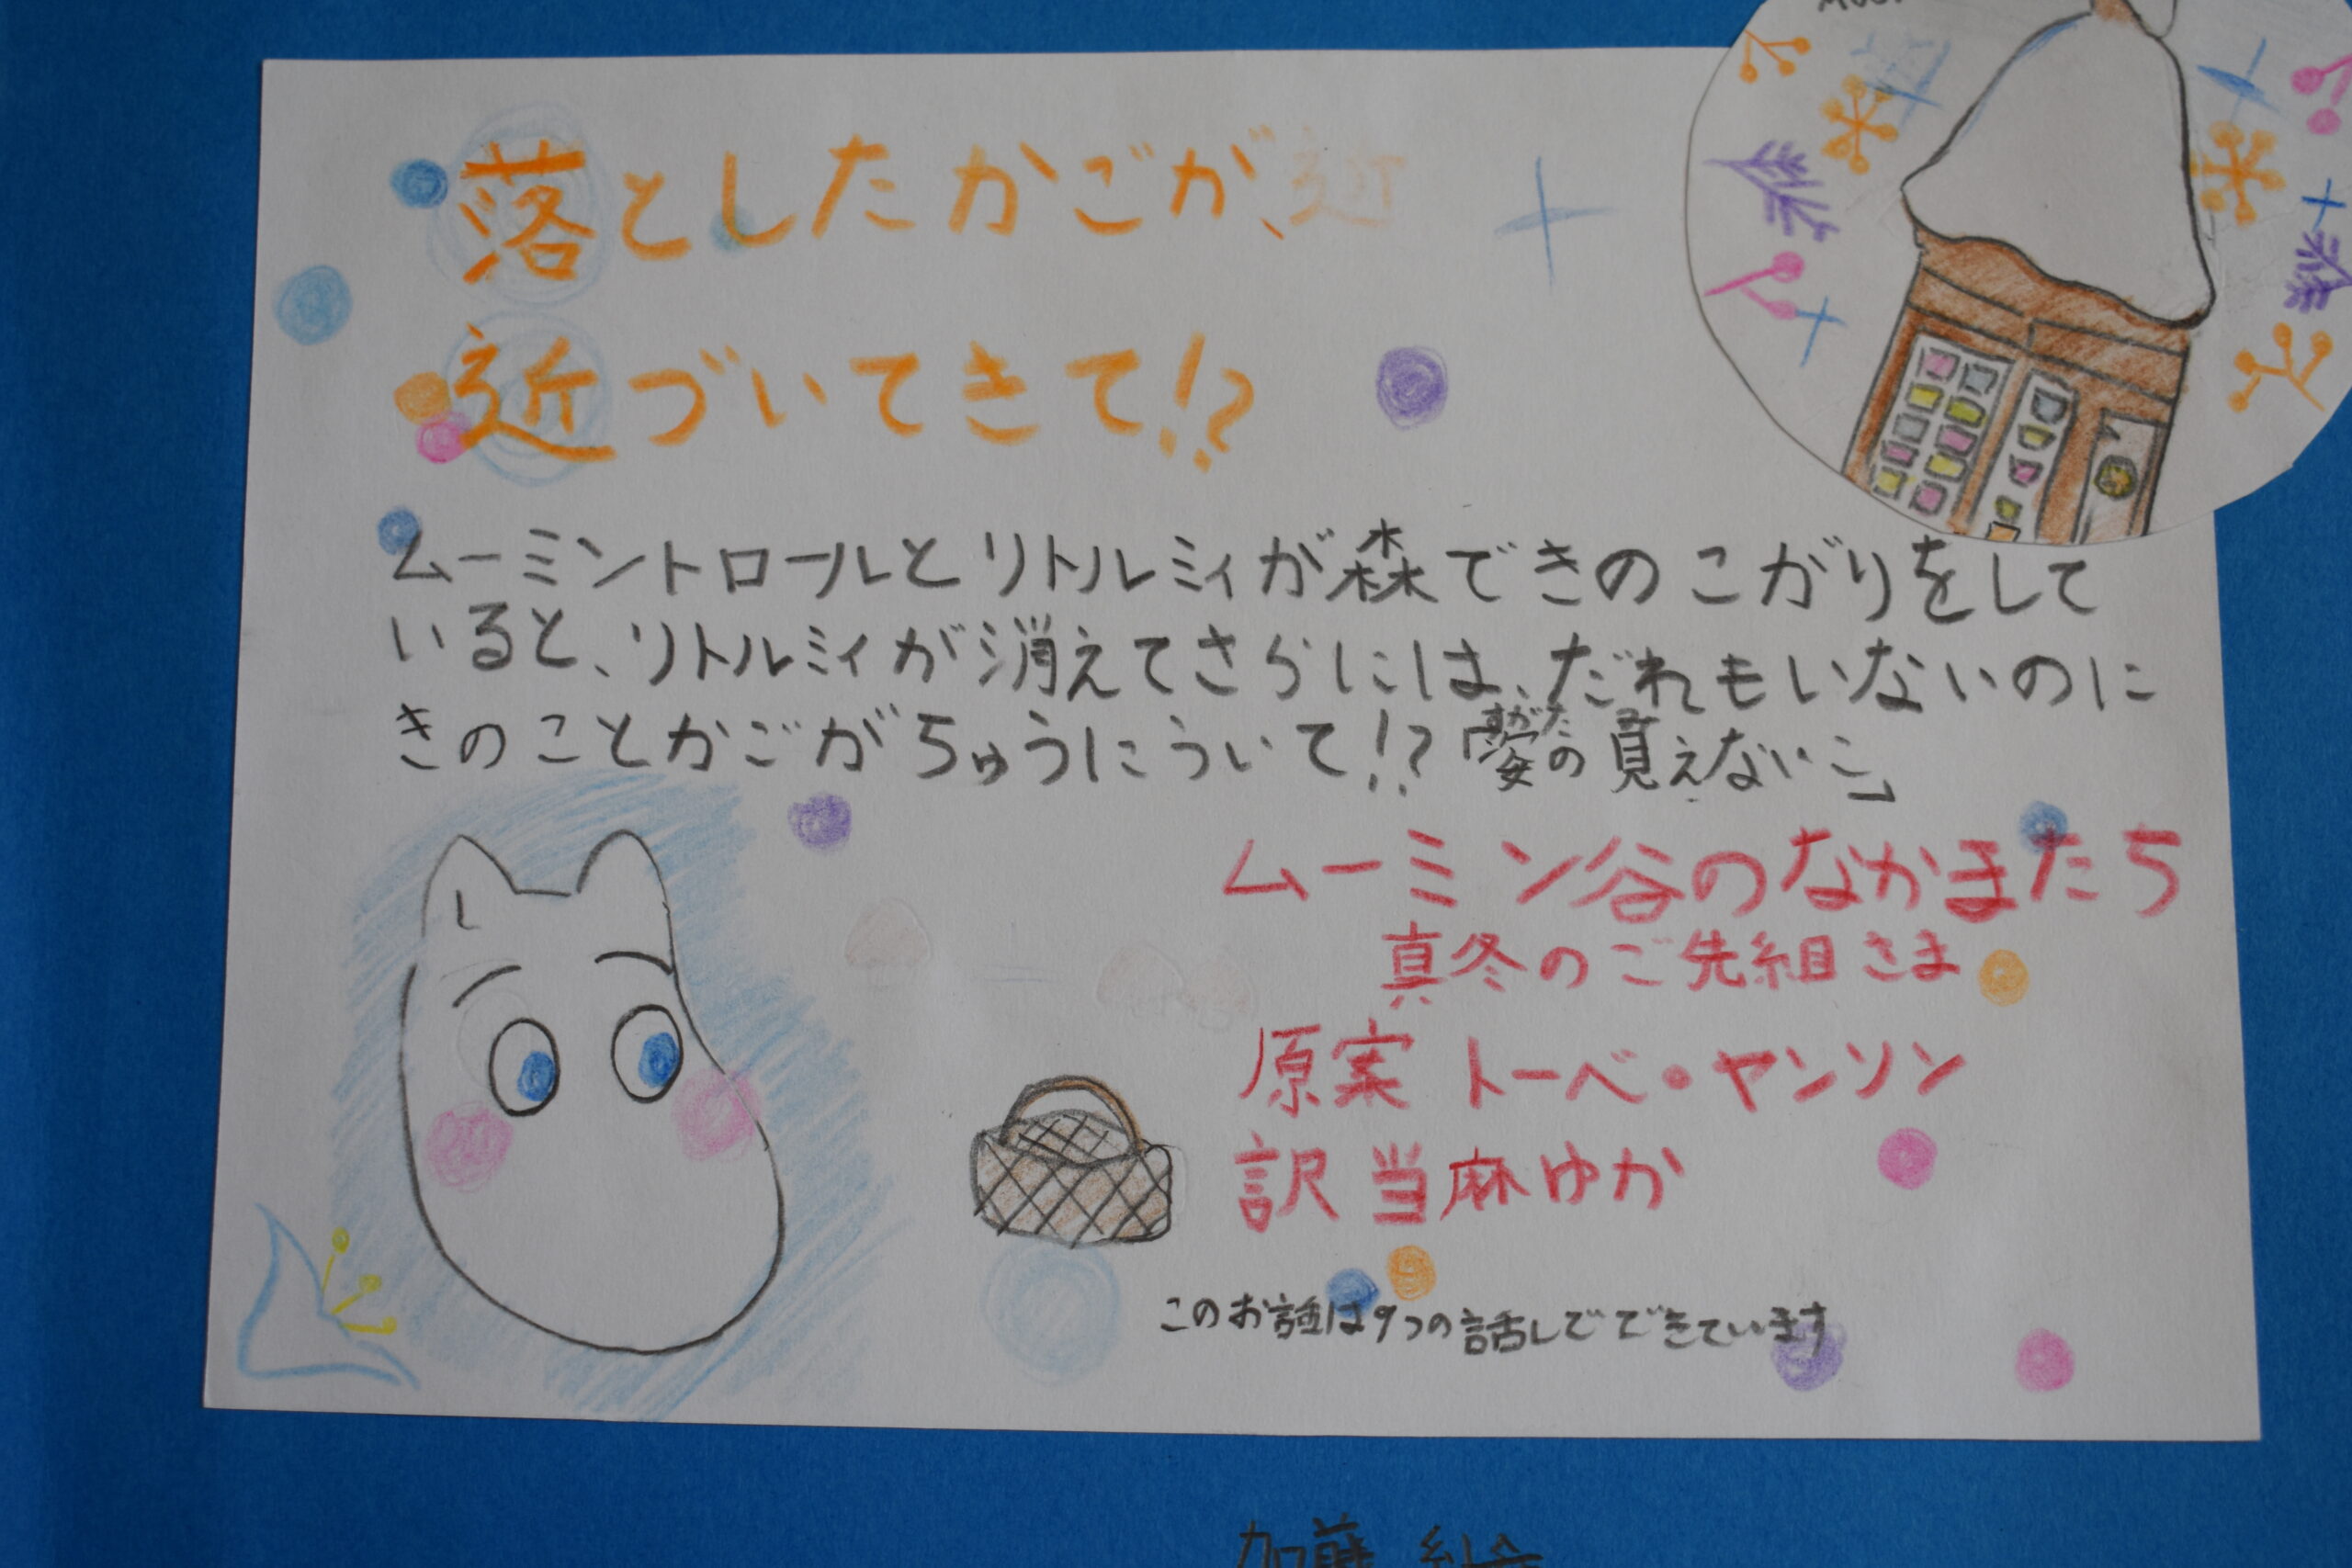 落としたかごが、近
近づいてきて!?
ムーミントロールとリトルミィが森できのこがりをして
いると、リトルミィが消えてさらには、だれもいないのに
きのことかごがちゅうにういて!?「姿の覚えないこ」
すがた
ムーミン谷のなかまたち
真冬のご先組さま
原案 トーベ・ヤンソン
訳 当麻ゆか
このお話は9つの話しでできています
加藤